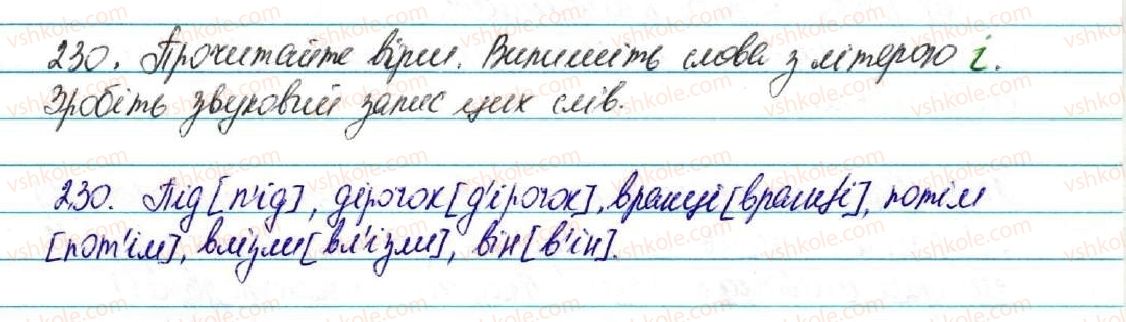 230. Прочитайте вірш. Випишіть слова з літерою і.
Зробіть звуковий запис цих слів.
230. Під [п'ід], дірочок [д'ірочок], вранці [вранц'і], потім
[пот'ім], влізли [вл'ізли], він [в'ін].